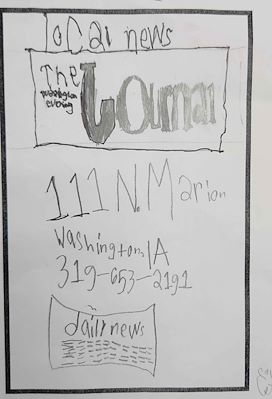 LoCal news
The
washington
evening
Journal
111 N. Marion
Washington, IA
319-653-2191
daily news